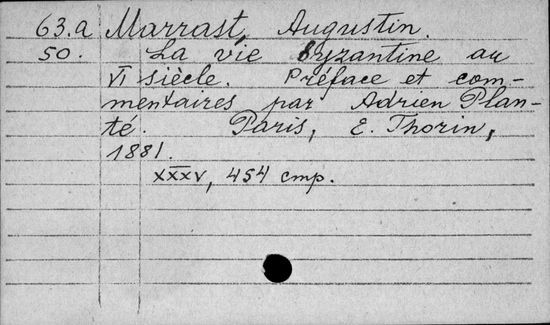 63.a Marrast, Augustin.
50. La vie byzantine au
VI siècle. Préface et com-
mentaires par Adrien Plan-
té. Paris, E. Thorin,
1881.
XXXV, 454 cmp.